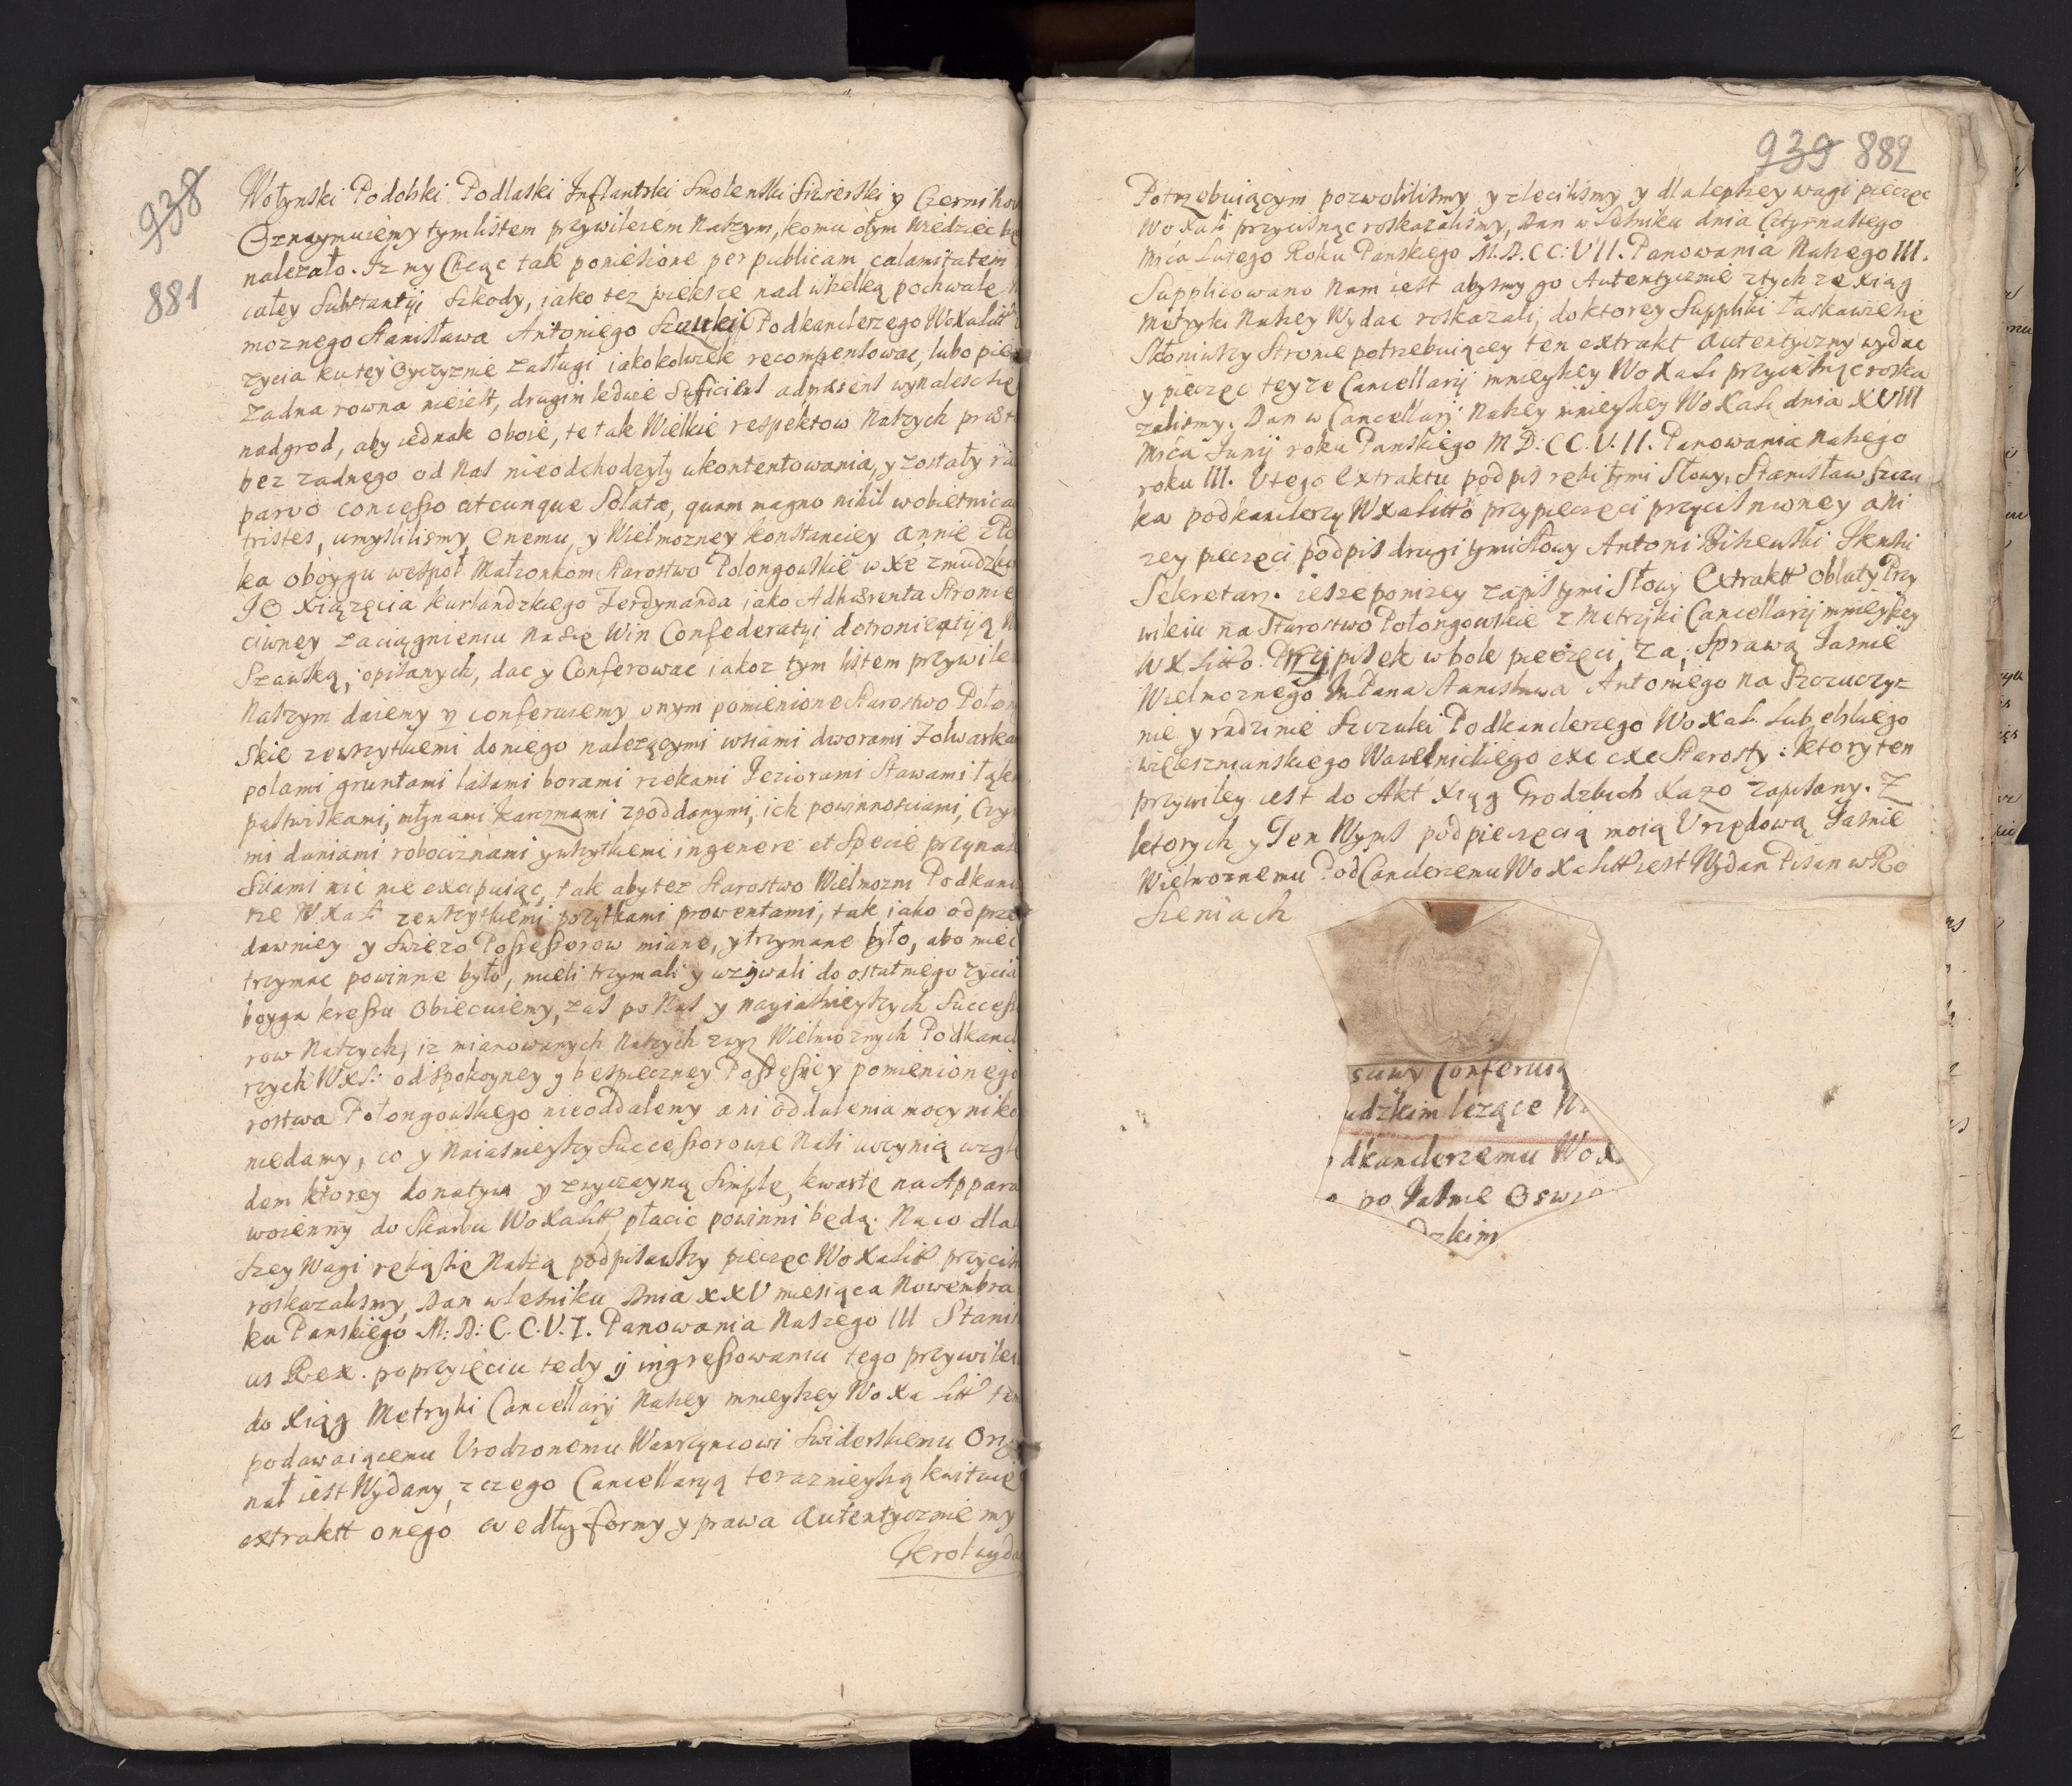 938
881
Wołynski Podolski Podlaski Inflantski Smolenski Siwierski y Czernihow
Oznaymuiemy tym listem przywileiem Naszym, komu o tym Wiedziec bę
nalezało. Iz my Chcąc tak poniesione per publicam calamitatem
całey Substantyi Szkody, iako tez wieksze nad wszelką pochwałę
moznego Stanisława Antoniego Szczuki Podkanclerzego WoXaLitt
zycia ku tey Oyczyznie zasługi iakokolwiek recompensowac, lubo pier
zadna rowna nieiest, drugim ledwie Sufficiens adpraesens wynalesc się
nadgrod, aby iednak oboie, te tak Wielkie respektow Naszych
bez zadnego od Nas nieodchodzyły ukontentowania, y zostały
parvo concesso utcunque Solatae, quam magno nihil w obietnica
tristes, umyslilismy Onemu, y Wielmozney Konstanciey Annie
ka oboygu wespoł Małzonkom Starostwo Połongowskie w Xę zmudzki
JO Xiązęcia Kurlandzkiego Ferdynanda iako Adhaerenta Stronie
ciwney zaciągnieniu na Się Win Confederatyi detroniqatyią
Szawską, opisanych, dac y Conferowac iakoz tym listem przywile
Naszym daiemy y conferuiemy onym pomienione Starostwo Połon
skie zewszytkiemi doniego nalezącymi wsiami dworami Folwarka
polami gruntami lasami borami rzekami Ieziorami Stawami łąka
pastwiskami, młynami karczmami zpoddanymi, ich powinnosciami, Czyn
mi daniami robociznami y wszytkiemi ingenere et Specie przynal
Sciami nic nie excipuiąc, tak aby tez Starostwo Wielmozni Podkanc
rze W.XaLi zewszytkiemi pozytkami prowentami, tak iako od prze
dawniey y Swiezo Possessorow miane, y trzymane było, abo miec
trzymac powinne było, mieli trzymali y uzywali do ostatniego zycia
boyga kressu Obiecuiemy, zas po Nas y nayiasnieyszych Success
row Naszych, iz mianowanych Naszych zwyz Wielmoznych Podkancl
rzych WXL: od Spokoyney y bespieczney Possessiey pomienionego
rostwa Połongowskiego nieoddalemy ani oddalenia mocy niko
niedamy, co y Naiasnieyszy Successorowie Nasi uczynią wzglę
dem ktorey donatywy y zwyczayną Simplę kwartę na Appara
woienny do Skarbu WoXaLitt płacic powinni będą. Na co dla
Szey Wagi ręką Się Naszą podpisawszy pieczęc WoXaLitt przycis
roskazalismy, Dan w Lesniku Dnia XXV miesiąca Nowembra
ku Panskiego M: D: C. C. V. I. Panowania Naszego III Stanis
us Rex. po przyięciu tedy y ingrossowaniu tego przywile
do Xiąg Metryki Cancellarij Naszey mnieyszey WoXa Litt ten
podawaiącemu Urodzonemu Wawrzyncowi Swiderskiemu Ory
nał iest Wydany, z czego Cancellaryą teraznieyszą kwituie
extraktt onego według formy y prawa Autentycznie my
wyda
939 882
Potrzebuiącym pozwolilismy y zlecilismy, y dla lepszey wagi pieczęc
WoXaLi przycisnąc roskazalismy, Dan w Lesniku dnia Cztyrnastego
Mića Lutego Roku Panskiego M.D.CC: VII. Panowania Naszego III.
Supplicowano Nam iest abysmy go Autentycznie ztych ze Xiąg
Metryki Naszey Wydac roskazali, do ktorey Suppliki łaskawie Się
Skłoniwszy Stronie potrzebuiącey ten extrakt Autentyczny wydac
y pieczęc teyze Cancellarij mnieyszey WoXaLi przycisnąc roska
zalismy. Dan w Cancellarij Naszey mnieyszey WoXaLi dnia XVIII
Mića Junij roku Panskiego M D: C C. V. II. Panowania Naszego
roku III. U tego Extraktu podpis ręki tymi Słowy. Stanisław Szczu
ka podkanclerzy WXaLitto przy pieczęci przycisnioney a ni
zey pieczęci podpis drugi tymi Słowy Antoni
Sekretarz. ieszcze ponizey zapis tymi Słowy Extraktt oblaty Przy
wileiu na Starostwo Połongowskie z Metryki Cancellarij mnieyszey
WXLitto. Przypisek w bok pieczęci, za Sprawą Jasnie
Wielmoznego JmPana Stanisława Antoniego na Szczuczy
nie y radzinie Szczuki Podkanclerzego WoXaL. Lubelskiego
Wawelnickiego exc exc Starosty: ktory ten
przywiley iest do Akt Xiąg Grodzkich Xazo zapisany. Z
ktorych y Ten Wypis pod pieczęcią moią Urzędową Jasnie
Wielmoznemu Pod Canclerzemu WoXaLitt iest Wydan Pisan w Ro
Sieniach
Conferuią
udzkim lezące
dkanclerzemu WoX
po Jasnie Oswie
dzkim